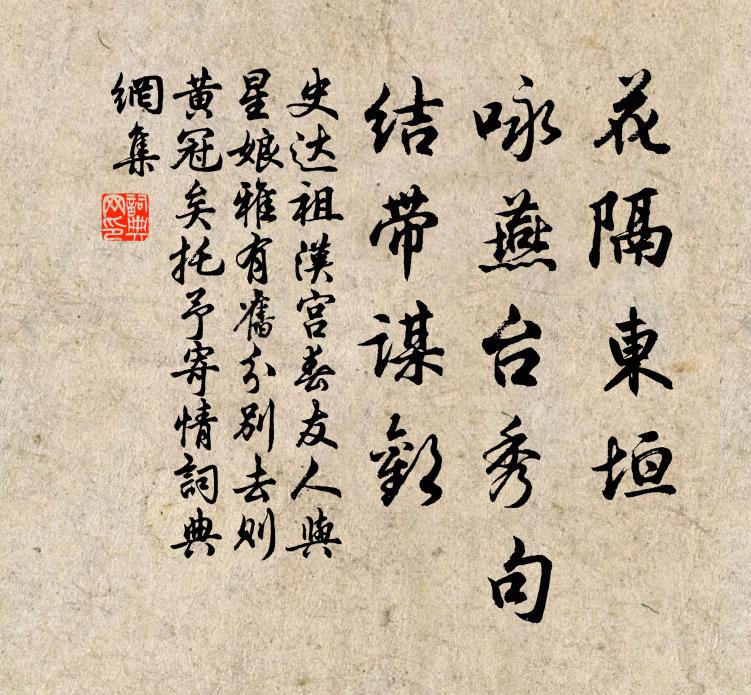 花隔東垣
咏燕台秀句
结带谋歡
史达祖漢宫春友人與
星娘雅有舊分别去则
黄冠矣托予寄情詞典
網集
詞典
网印